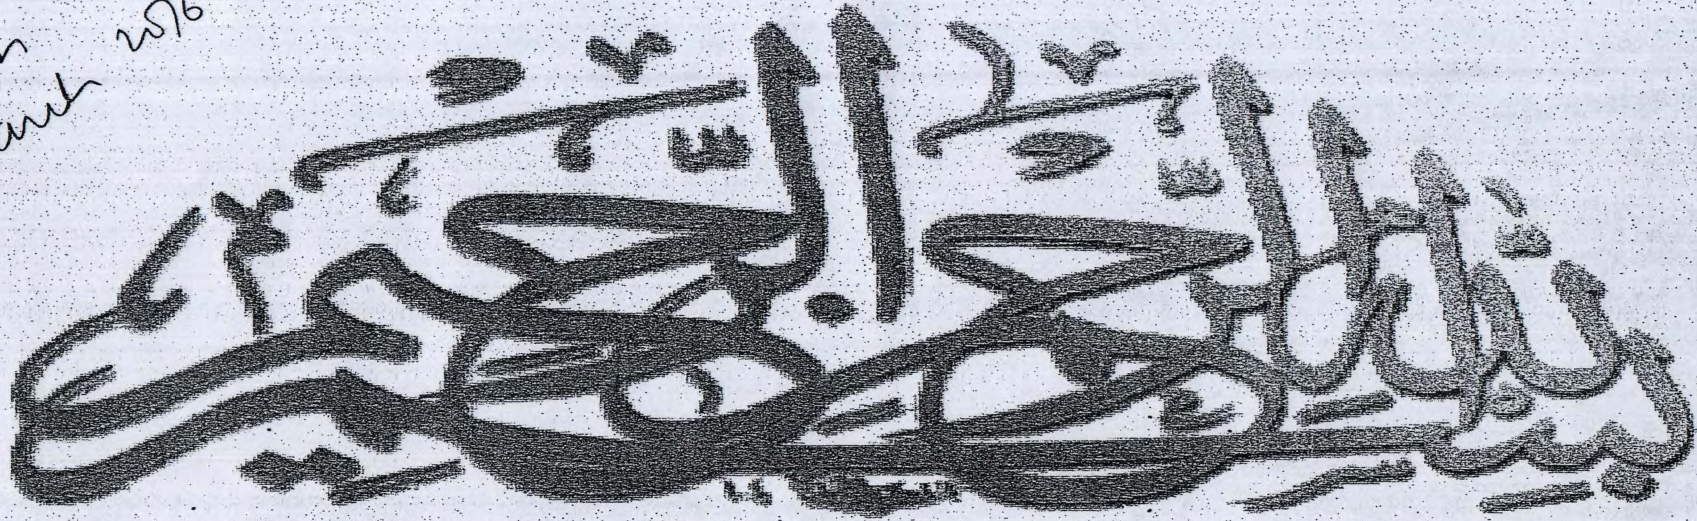 2016
بسم الله الرحمن الرحيم